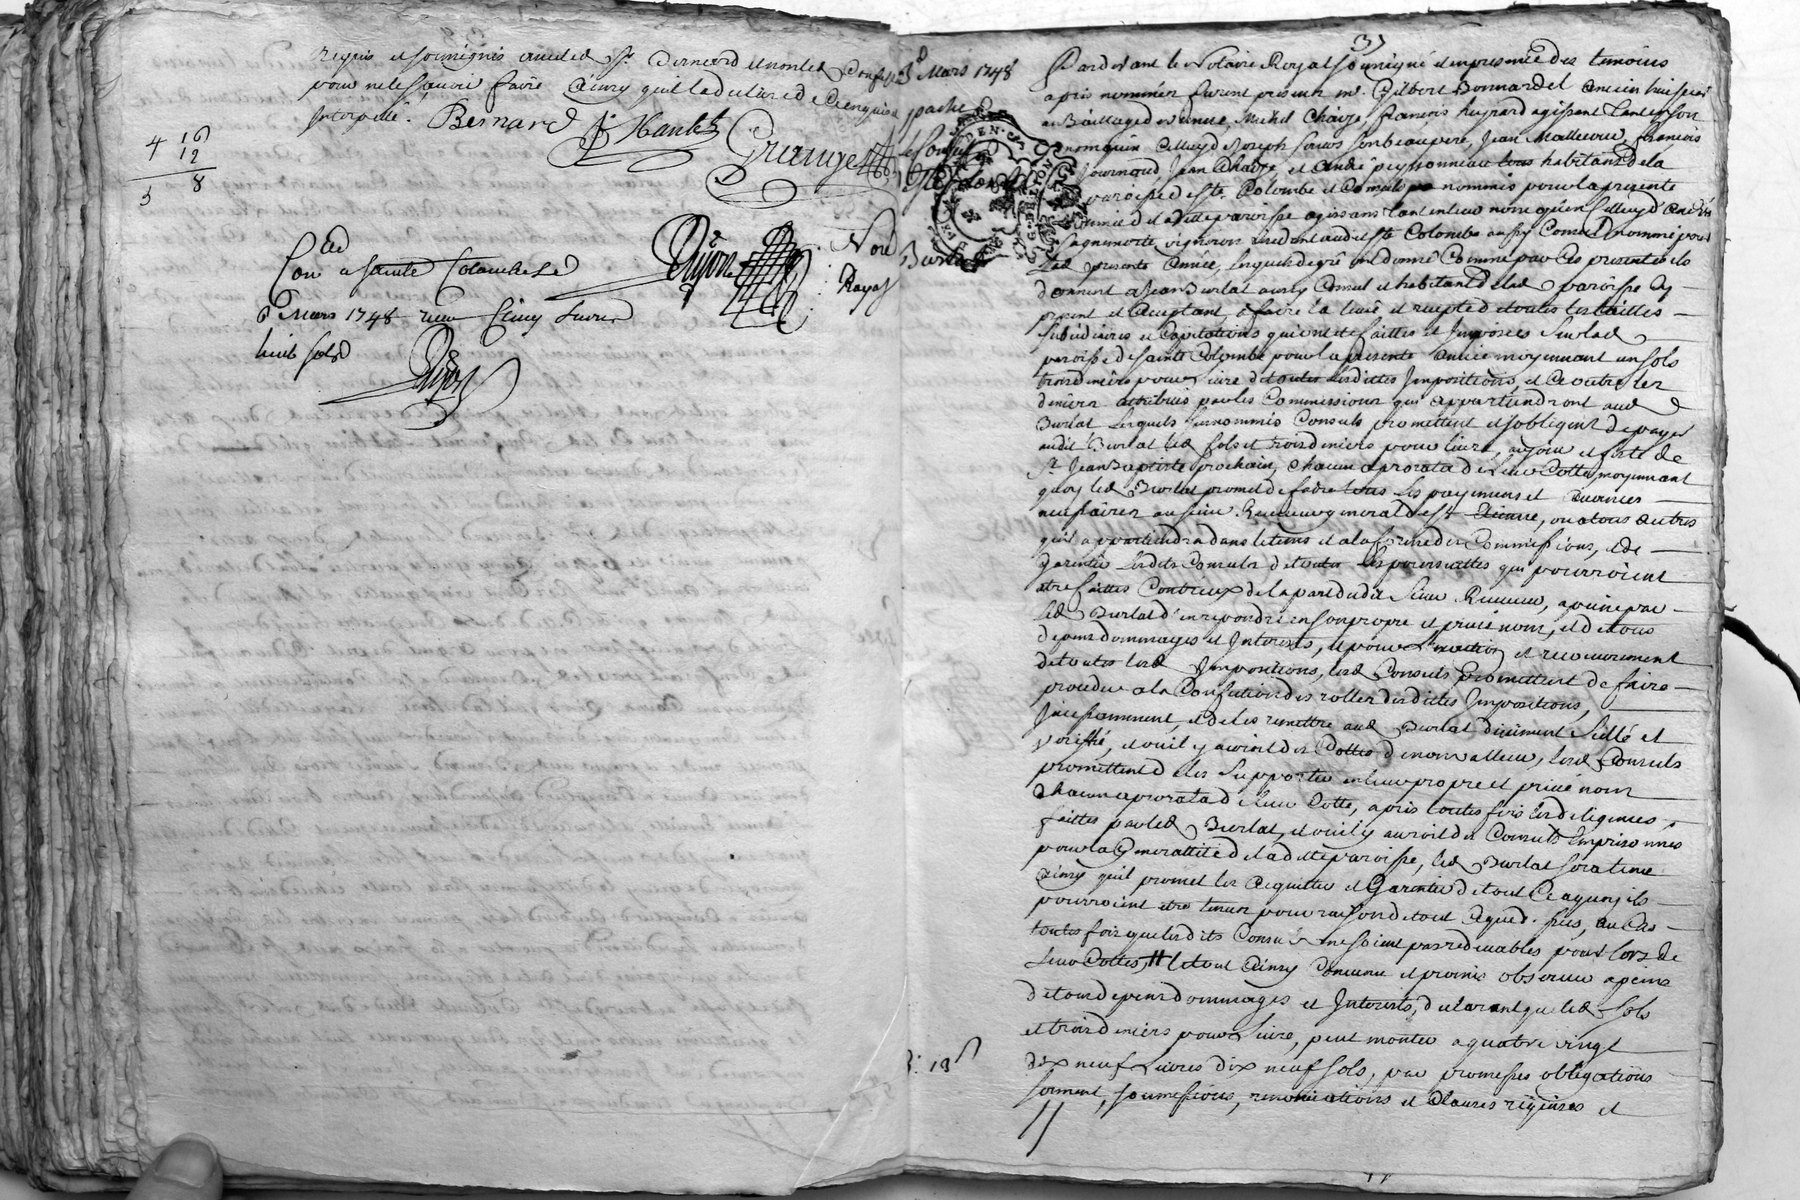 requis et soussignés avec led. Sr. Bernard et non led.
pour ne le sçavoir faire ainsy qu'il a declaré de ce enquis
Interpellé. Bernard Grange
4 19
12
5 8
Con a Sainte Colombe le
6 Mars 1748 receu Cinq Livres
huit sols
Royal
3e Mars 1748
pache
Burlat
31
Pardevant le Notaire Royal soussigné et en presence des temoins
apres nommés furent presents me. Gilbert Bonnardel ancien huissier
au Bailliage de vienne, Michel Chaize, francois heyrard agissant tant en son
nom qu'en celluy de Joseph son beaupere, Jean Mallecour, francois
Journoud, Jean Chaize, et andré peyronneau tous habitans de la
paroisse de Ste. Colombe et Consuls nommés pour la presente
année de laditte paroisse agissans tant en leur nom qu'en celluy d'andré
vigneron residant audit Ste Colombe aussy Consul nommé pour
lad. presente année, lesquels de gré ont donné comme par ces presentes ils
donnent a Jean Burlat aussy Consul et habitant de lad. paroisse cy
present et acceptant, a faire la levée et recepte de toutes les tailles
subsidiaires et Capitations qui ont été faittes et Imposées sur lad.
paroisse de sainte Colombe pour la presente année moyennant un sols
trois deniers pour livre de toutes lesdittes Impositions, et ce outre les
deniers attribués par les Commissions qui appartiendront aud.
Burlat Lesquels surnommés Consuls promettent et s'obligent de payer
audit Burlat led. sols et trois deniers pour livre, au jour et feste de
St. Jean Baptiste prochain, chacun a prorata de leur Cotte, moyennant
quoy led. Burlat promet de faire tous les payemens et avances
necessaires au sieur Receveur general de St Etienne, ou a tous autres
qu'il appartiendra dans le tems et a la forme des Commissions, et de
garentir lesdits Consuls de toutes les poursuittes qui pourroient
etre faittes Contr'eux de la part dudit sieur Receveur, a peine par
led. Burlat d'en repondre en son propre et privé nom, et de tous
depens dommages et Interests, et pour l'exaction et recouvrement
de toutes lesd. Impositions, lesd. Consuls promettent de faire
proceder a la Confection des rolles desdittes Impositions,
Incessamment, et de les remettre aud. Burlat duement scellé et
verifié, et ou il y auroit des Cottes de non valleur, lesd. Consuls
promettent de les supporter en leur propre et privé nom
chacun a prorata de leur Cotte, apres toutes fois les diligences
faittes par led. Burlat, et ou il y auroit des Consuls Emprisonnés
pour la Generallité de laditte paroisse, led. Burlat sera tenu
ainsy qu'il promet les acquitter et Garentir de tout ce a quoy ils
pourroient etre tenus pour raison de tout ce que d. sus, au Cas
toutes fois que lesdits Consuls ne soient pas redevables pour lors de
leur Cottes, le tout ainsy convenu et promis observer a peine
de tous depens dommages et Interests, declarant que led. sols
et trois deniers pour livre, peut monter a quatre vingt
dix neuf Livres dix neuf sols, par promesses obligations
serment, soumissions, renonciations et Clauses requises et